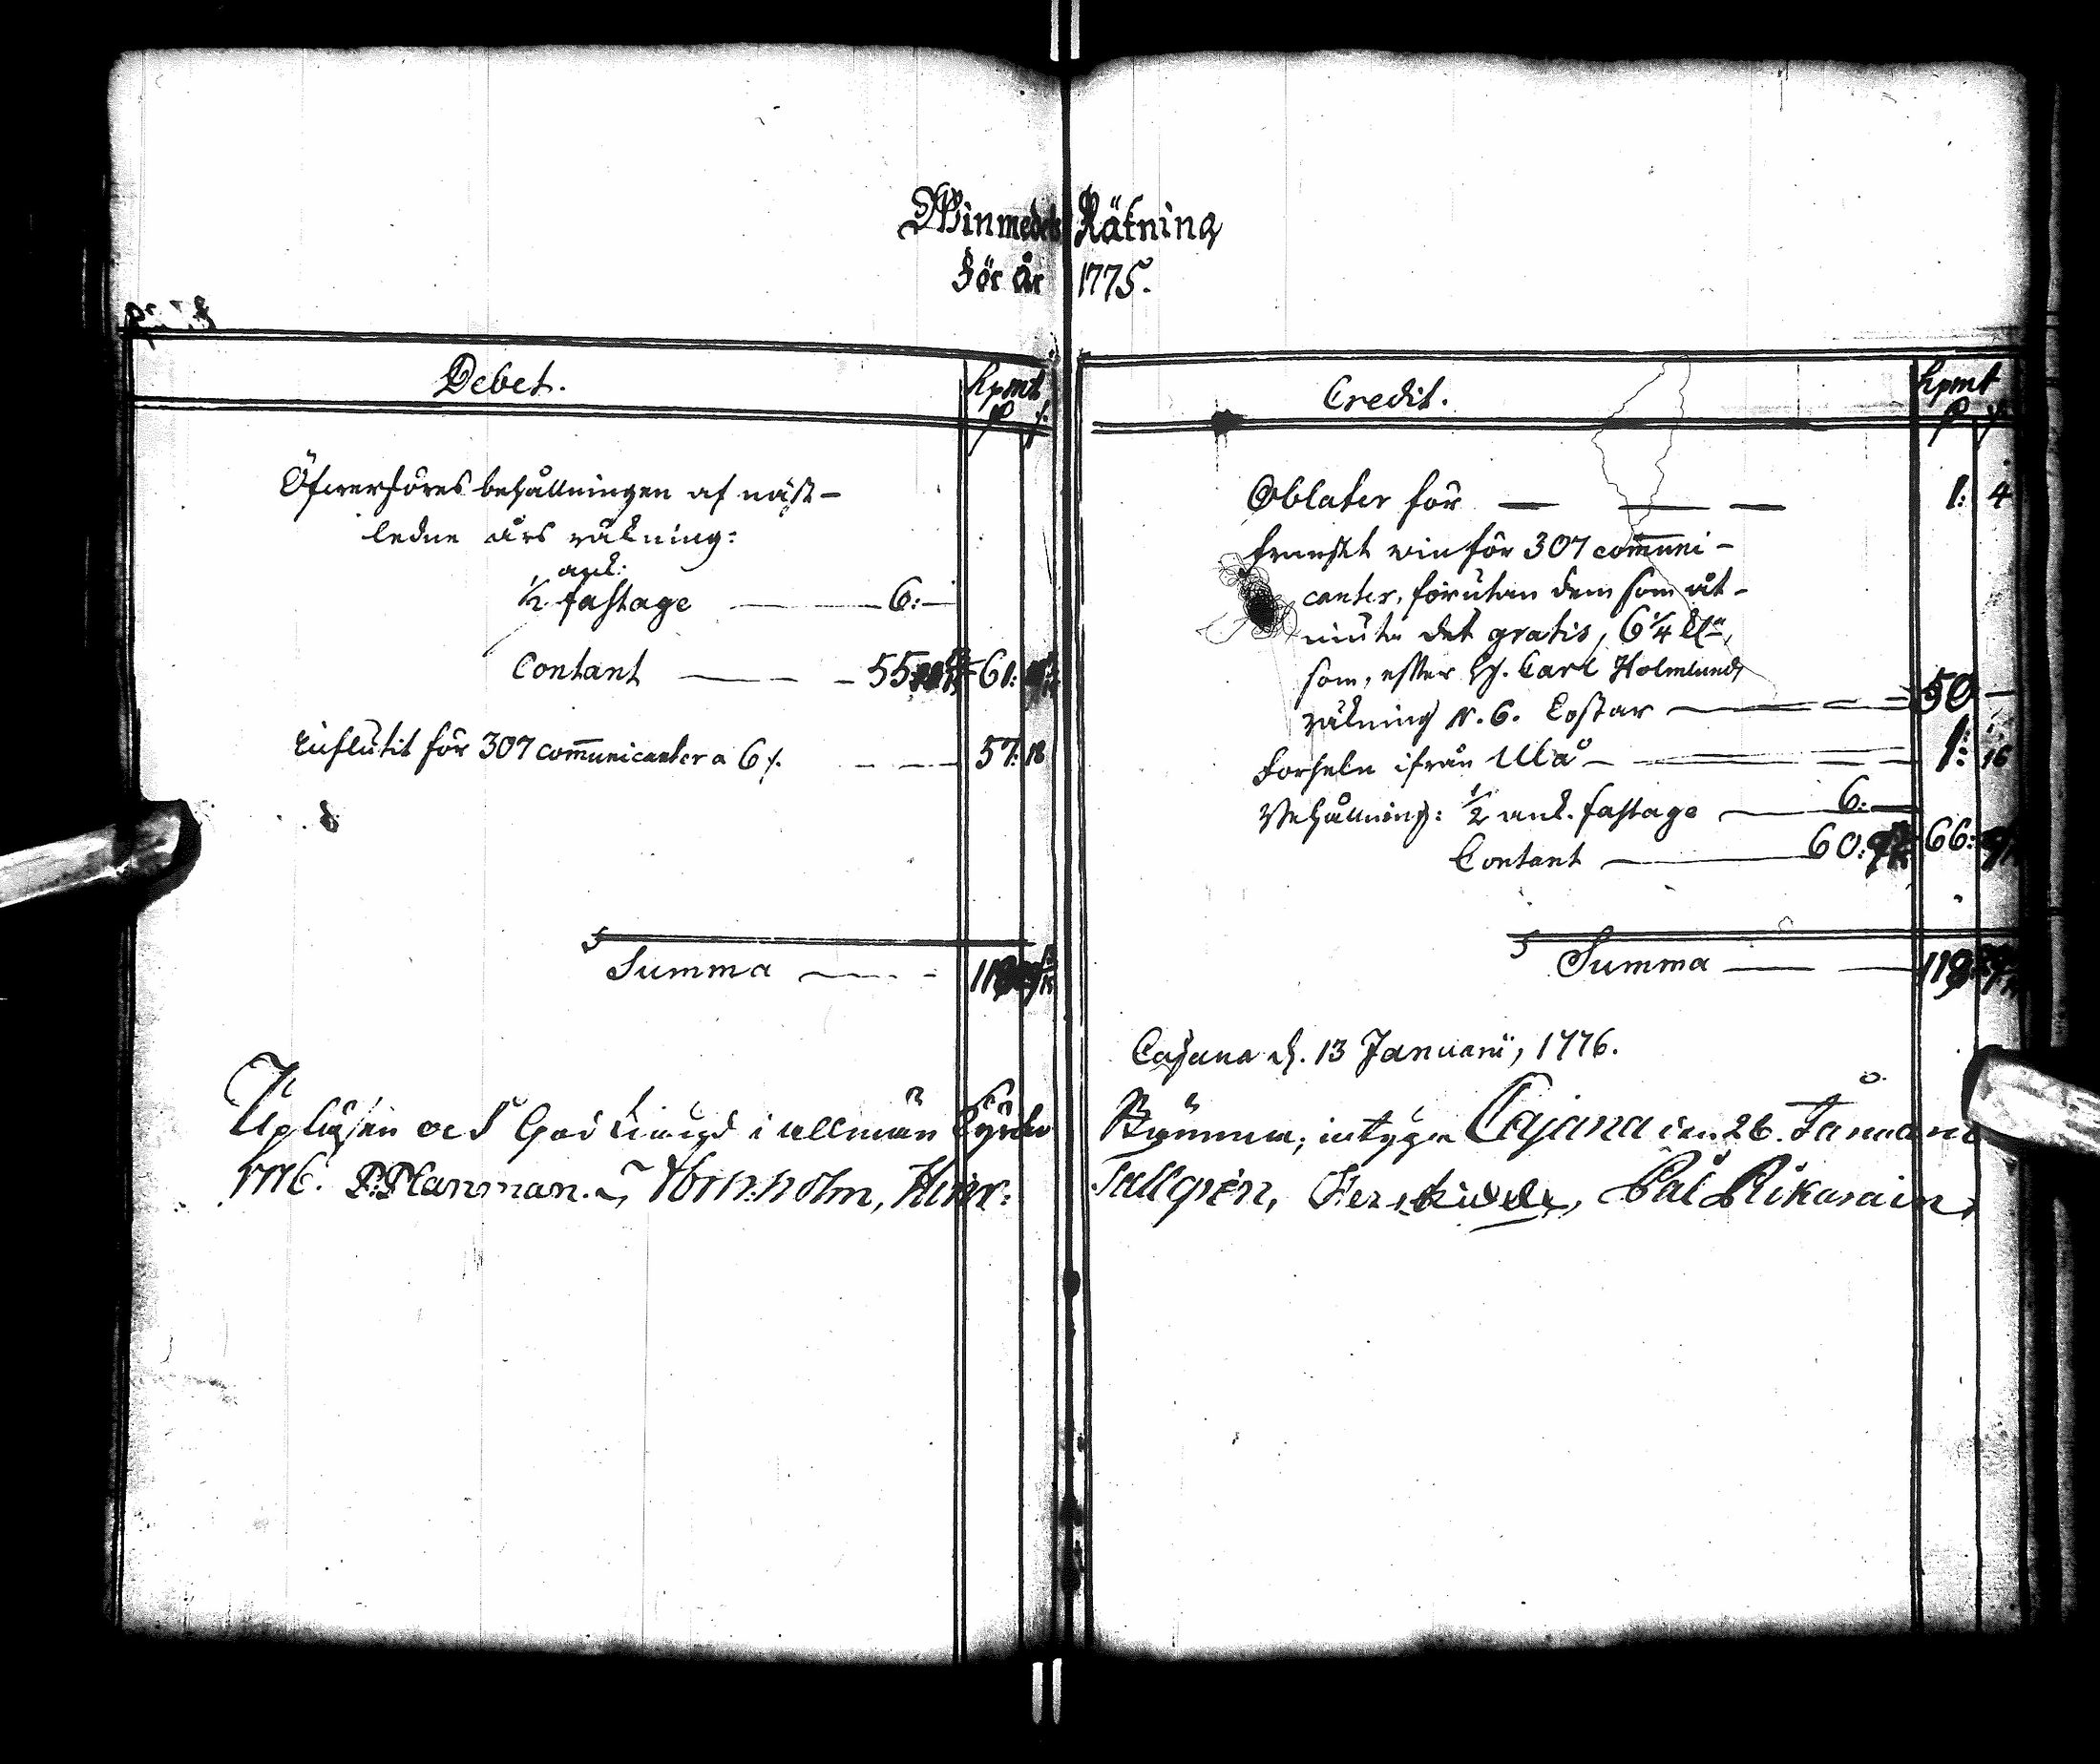 Winmedels Räkning
För År 1775.
Debet.
Kpmt
Öfwerföres behållningen af näst-
ledne års räkning:
ank:
1/2 fastage 6:—
Contant 55: 61:
Influtit för 307 communicanter a 6 57: 18
Summa
Credit.
Kpmt
Oblater för — — — 1: 4
franskt win för 307 communi-
canter, förutan dem som åt-
niuta det gratis, 6 1/4
som, efter H. Carl Holmlunds
räkning N. 6. Costar 50 —
Forseln ifrån Ulå 1: 16
Behållning: 1/2 ank. fastage 6:—
Contant 60: 66:
Summa 119:
Cajana d. 13 Januarii, 1776.
Upläsen och Godkiänd i allmän Kyrko Stämma, intyga Cajana den 26. Januarii
1776. P: Planman. Hinr: Tallgrén, Påål Likarain